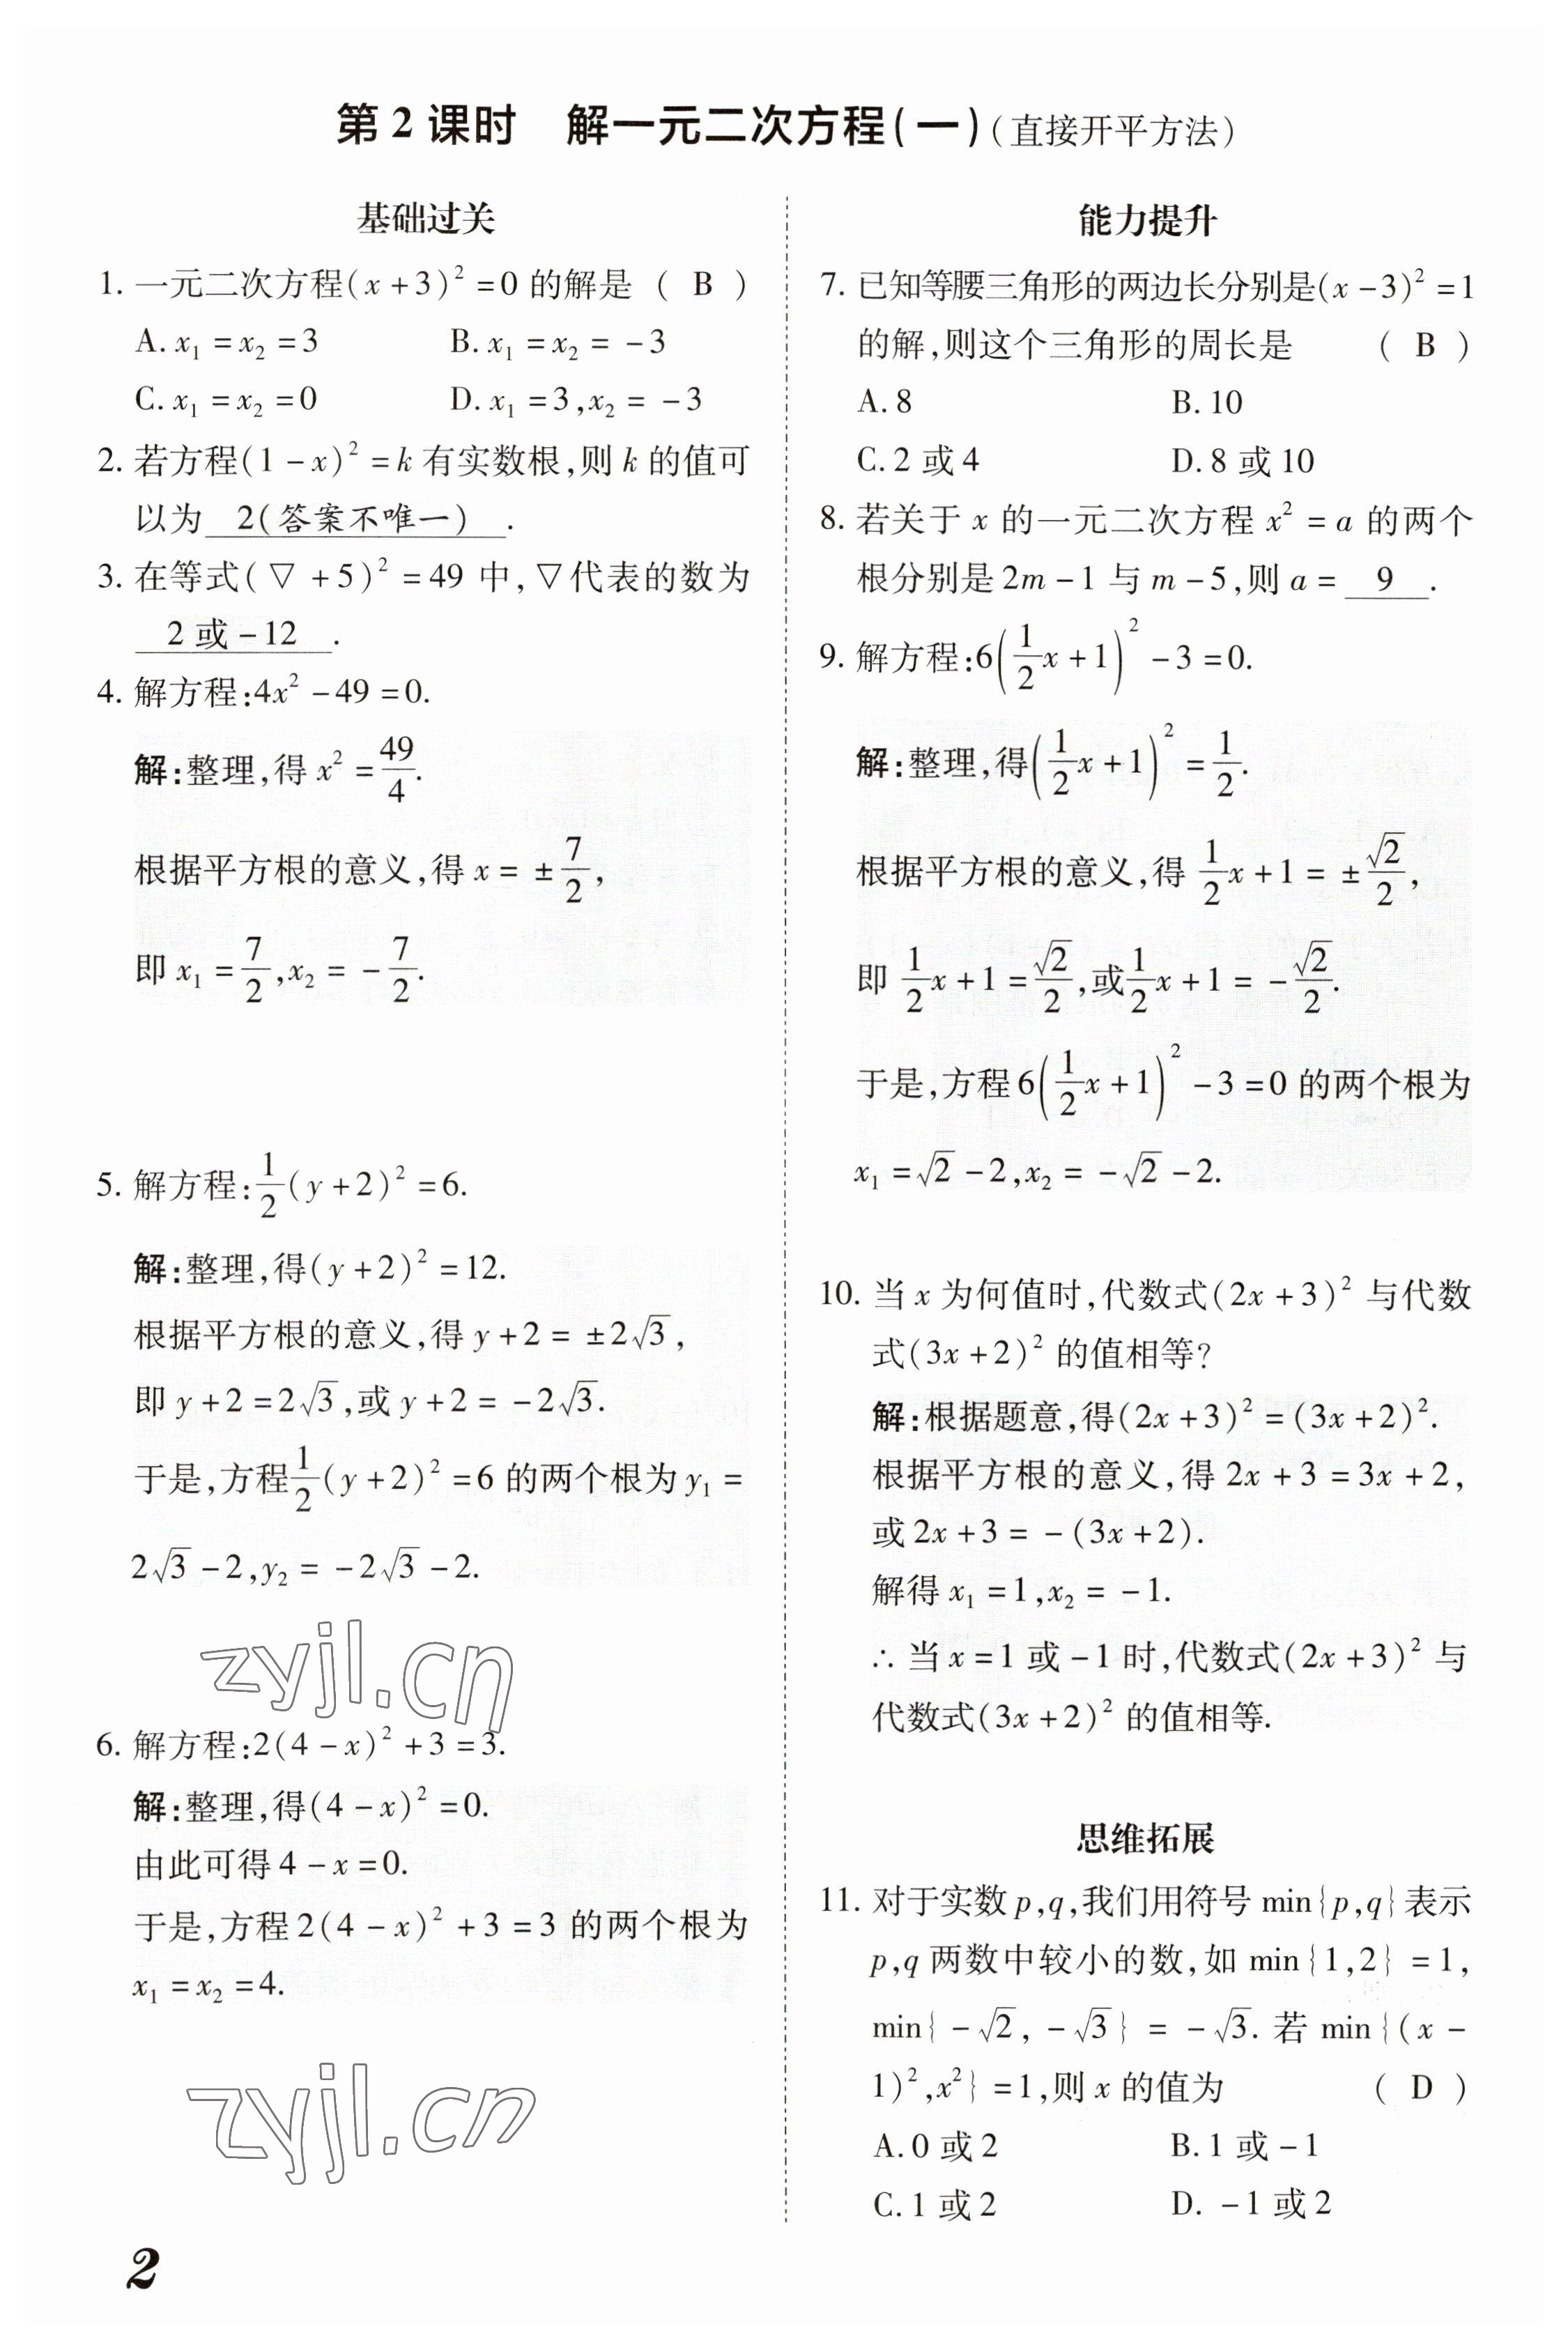 第2课时 解一元二次方程(一)(直接开平方法)
基础过关
1. 一元二次方程(x+3)²=0的解是 ( B )
A. x₁=x₂=3 B. x₁=x₂=-3
C. x₁=x₂=0 D. x₁=3,x₂=-3
2. 若方程(1-x)²=k有实数根,则k的值可
以为 2(答案不唯一) .
3. 在等式(▽+5)²=49中,▽代表的数为
2或-12 .
4. 解方程:4x²-49=0.
解:整理,得x²=49/4.
根据平方根的意义,得x=±7/2,
即x₁=7/2,x₂=-7/2.
5. 解方程:1/2(y+2)²=6.
解:整理,得(y+2)²=12.
根据平方根的意义,得y+2=±2√3,
即y+2=2√3,或y+2=-2√3.
于是,方程1/2(y+2)²=6的两个根为y₁=
2√3-2,y₂=-2√3-2.
zyjl.cn
6. 解方程:2(4-x)²+3=3.
解:整理,得(4-x)²=0.
由此可得4-x=0.
于是,方程2(4-x)²+3=3的两个根为
x₁=x₂=4.
zyjl.cn
能力提升
7. 已知等腰三角形的两边长分别是(x-3)²=1
的解,则这个三角形的周长是 ( B )
A. 8 B. 10
C. 2或4 D. 8或10
8. 若关于x的一元二次方程x²=a的两个
根分别是2m-1与m-5,则a= 9 .
9. 解方程:6(1/2x+1)²-3=0.
解:整理,得(1/2x+1)²=1/2.
根据平方根的意义,得1/2x+1=±√2/2,
即1/2x+1=√2/2,或1/2x+1=-√2/2.
于是,方程6(1/2x+1)²-3=0的两个根为
x₁=√2-2,x₂=-√2-2.
10. 当x为何值时,代数式(2x+3)²与代数
式(3x+2)²的值相等?
解:根据题意,得(2x+3)²=(3x+2)².
根据平方根的意义,得2x+3=3x+2,
或2x+3=-(3x+2).
解得x₁=1,x₂=-1.
∴当x=1或-1时,代数式(2x+3)²与
代数式(3x+2)²的值相等.
思维拓展
11. 对于实数p,q,我们用符号min{p,q}表示
p,q两数中较小的数,如min{1,2}=1,
min{-√2,-√3}=-√3.若min{(x-
1)²,x²}=1,则x的值为 ( D )
A. 0或2 B. 1或-1
C. 1或2 D. -1或2
2